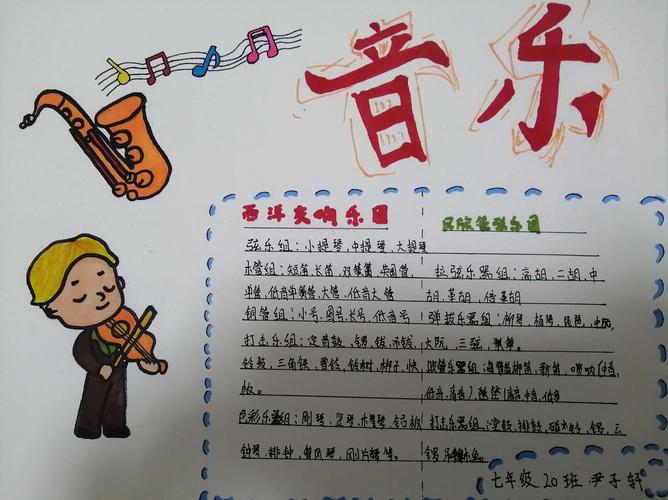 音乐
西洋交响乐团
民族管弦乐团
弦乐组：小提琴，中提琴，大提琴
木管组：短笛，长笛，双簧管，英国管，
单管，低音单簧管，大管，低音大管
铜管组：小号，圆号，长号，低音号
打击乐组：定音鼓，锣，钹，吊钹，
铃鼓，三角铁，铃树，梆子，快
板。
色彩乐器组：刚琴，竖琴，木琴，铝板
钟琴，排钟，管风琴，刚片琴等。
拉弦乐器组：高胡，二胡，中
胡，革胡，倍革胡
弹拨乐器组：柳琴，杨琴，琵琶，中阮，
大阮，三弦，
吹管乐器组：梆笛，新笛，唢呐（中音，
低音，高音），笙（高，中音，低音
打击乐器组：堂鼓，排鼓，碰铃，锣，云
锣
七年级20班 尹子轩